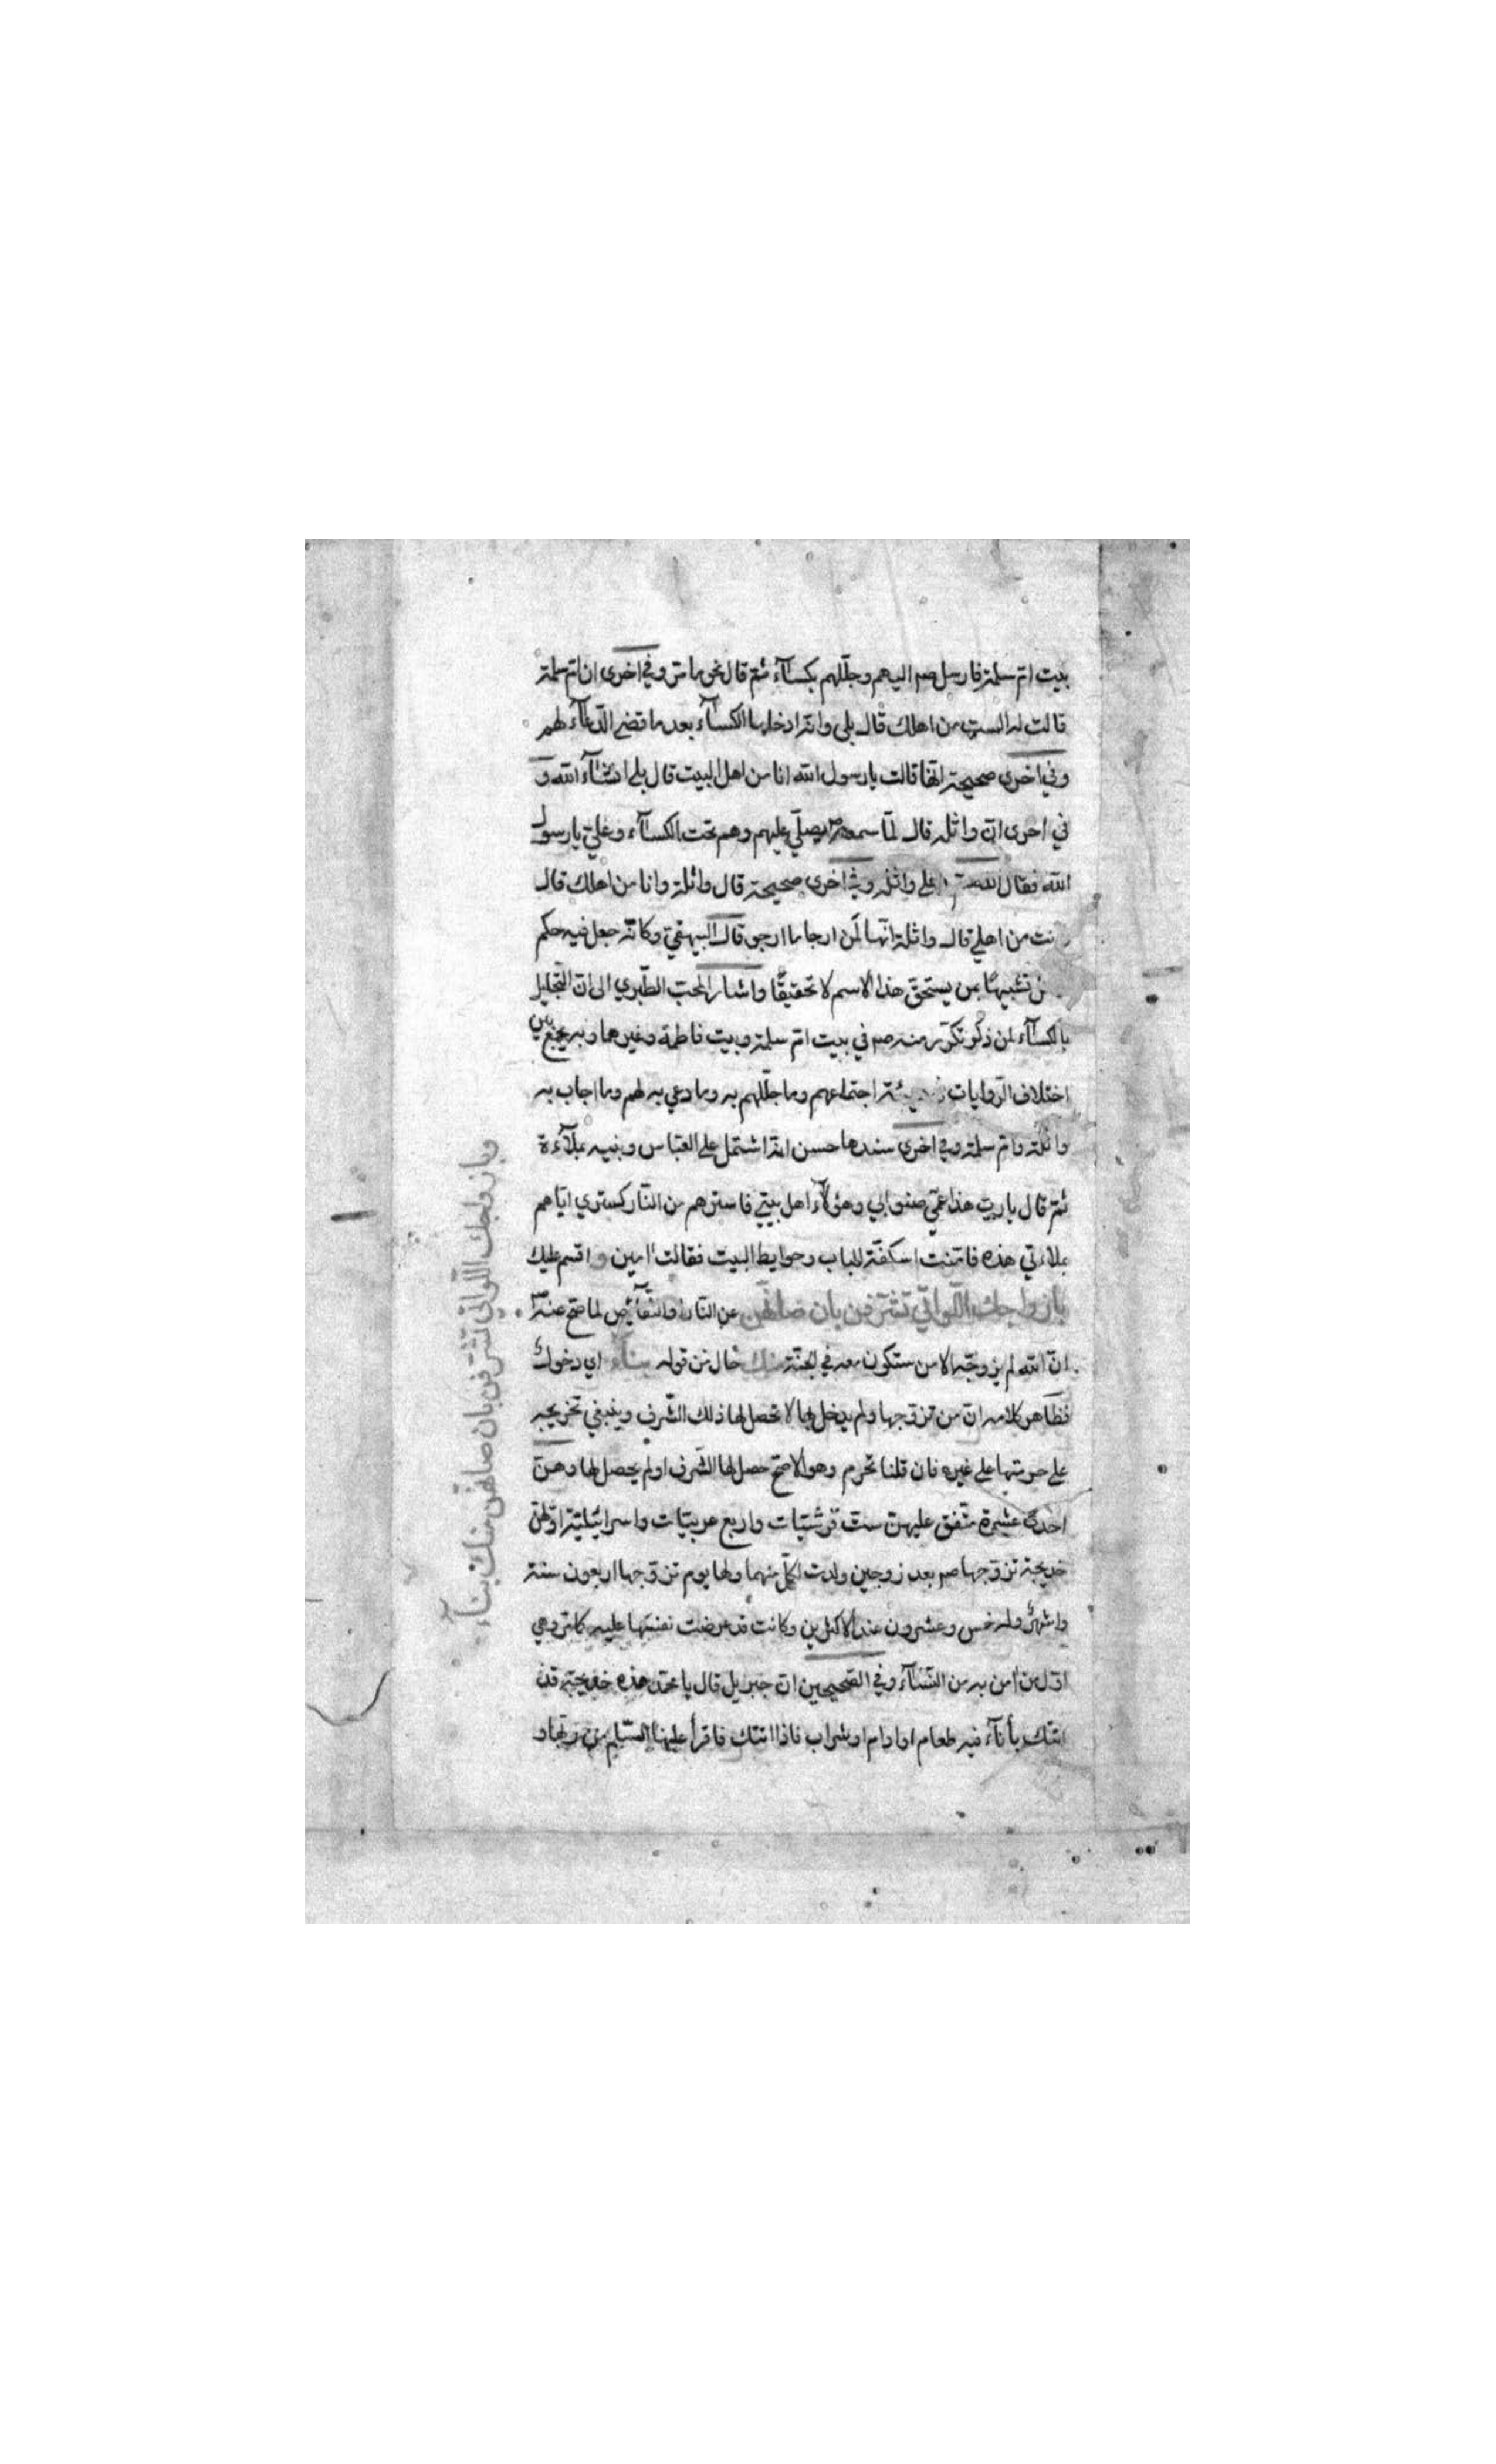 بيت ام سلمة فارسل صم اليهم وجللهم بكسآء ثم قال نحو ما مر وفي اخرى ان ام سلمة
قالت له الست من اهلك قال بلى وانه ادخلها الكسآء بعد ما قضى الدعآء لهم
وفي اخرى صحيحة انها قالت يا رسول الله انا من اهل البيت قال بلى انشآء الله و
في اخرى ان واثلة قال لما سمعه يصلي عليهم وهم تحت الكسآء وعلي يا رسول
الله فقال اللهم على واثلة وفي اخرى صحيحة قال واثلة وانا من اهلك قال
نت من اهلي قال واثلة انها لمن ارجا ما ارجو قال البيهقي وكانه جعل فيه حكم
تشبيها بمن يستحق هذا الاسم لا تحقيقا واشار المحب الطبري الى ان التجليل
بالكسآء لمن ذكر تكرر منه صم في بيت ام سلمة وبيت فاطمة وغيرها وبه يجمع بين
اختلاف الروايات اجتماعهم وما جللهم به وما دعي به لهم وما اجاب به
واثلة وام سلمة وفي اخرى سندها حسن انه اشتمل على العباس وبنيه بملآءة
ثم قال يا رب هذا عمي صنو ابي وهؤلآء اهل بيتي فاسترهم من النار كستري اياهم
بملاءتي هذه فامنت اسكفة الباب وحوايط البيت فقالت امين و اقسم عليك
بازواجك اللواتي تشرفن بان صانهن عن النار والنقآئص لما صح عنه
ان الله لم يزوجه الا من ستكون معه في الجنة منك حال من قوله بنآء اي دخولك
فظاهر كلامه ان من تزوجها ولم يدخل بها لا تحصل لها ذلك الشرف وينبغي تخريجه
على حرمتها على غيره فان قلنا تحرم وهو الاصح حصل لها الشرف او لم يحصل لها وهن
احدى عشرة متفق عليهن ست قرشيات واربع عربيات واسرائيلية اولهن
خديجة تزوجها صم بعد زوجين ولدت لكل منهما ولها يوم تزوجها اربعون سنة
واشهر وله خمس وعشرون عند الاكثرين وكانت قد عرضت نفسها عليه كما مر وهي
اول من امن به من النسآء وفي الصحيحين ان جبريل قال يا محمد هذه خديجة قد
اتتك بأنآء فيه طعام او ادام او شراب فاذا اتتك فاقرأ عليها السلم من ربها و
وبازواجك اللواتي تشرفن بان صانهن منك بنآء